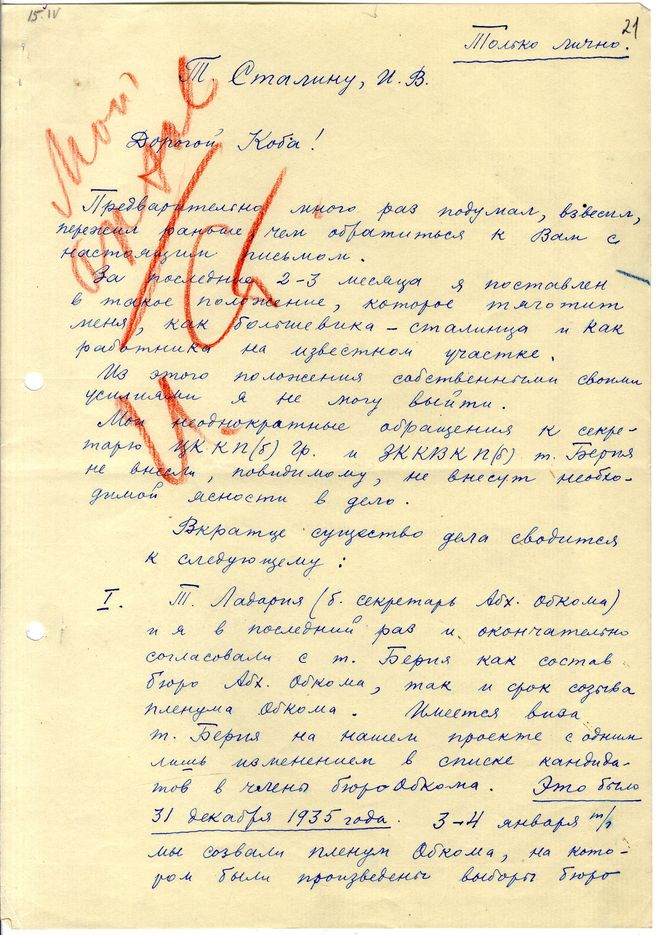 15.IV
21
Только лично.
Т. Сталину, И. В.
Мой
Дорогой Коба!
Предварительно много раз подумал, взвесил,
пережил раньше чем обратиться к Вам с
настоящим письмом.
За последние 2-3 месяца я поставлен
в такое положение, которое тяготит
меня, как большевика – сталинца и как
работника на известном участке.
Из этого положения собственными своими
усилиями я не могу выйти.
Мои неоднократные обращения к секре-
тарю ЦК КП(б) Гр. и ЗККВКП(б) т. Берия
не внесли, повидимому, не внесут необхо-
димой ясности в дело.
Вкратце существо дела сводится
к следующему:
I. Т. Ладария (б. секретарь Абх. Обкома)
и я в последний раз и окончательно
согласовали с т. Берия как состав
бюро Абх. Обкома, так и срок созыва
пленума Обкома. Имеется виза
т. Берия на нашем проекте с одним
лишь изменением в списке кандида-
тов в члены бюро Обкома. Это было
31 декабря 1935 года. 3-4 января т/г
мы созвали пленум Обкома, на кото-
ром были произведены выборы бюро